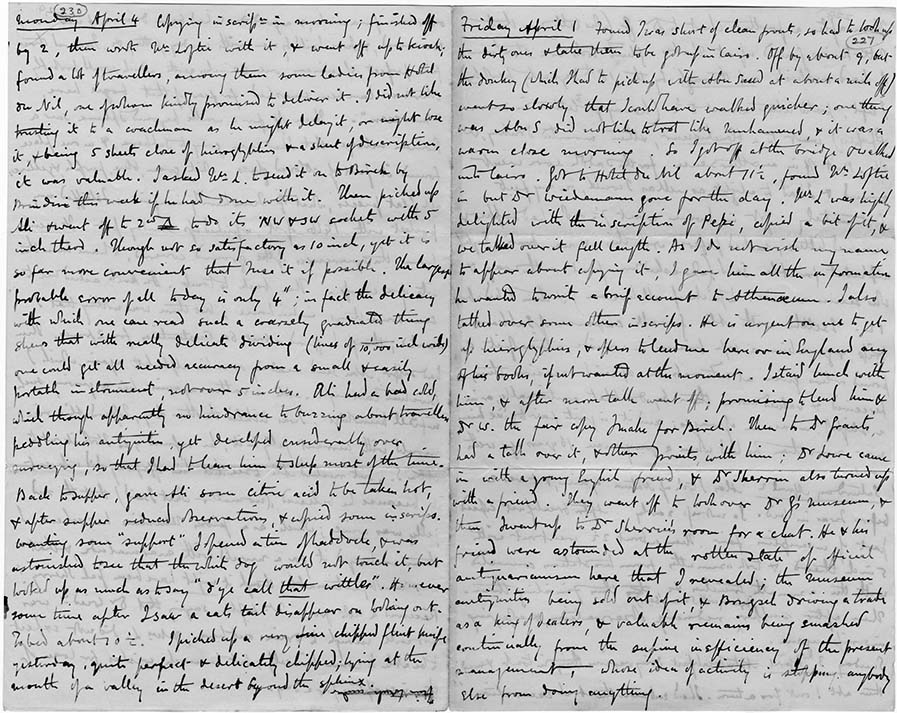 230
Monday April 4 Copying inscripn in morning; finished off
by 2, then wrote Mr Loftie with it, & went off up to kiosk,
found a lot of travellers, among them some ladies from Hotel
du Nil, one of whom kindly promised to deliver it. I did not like
trusting it to a coachman as he might delay it or might lose
it, & being 5 sheets close of hieroglyphics & a sheet of description,
it was valuable. I asked Mr L. to send it on to Birch by
Brindisi this week if he had done with it. Then picked up
Ali & went off to 2nd Δ to do its NW & SW sockets with 5
inch theod. Though not so satisfactory as 10 inch, yet it is
so far more convenient that I use it if possible. The largest
probable error of all today is only 4"; in fact the delicacy
with which one can read such a coarsely graduated thing
shews that with really delicate dividing (lines of 1/10,000 inch wide)
one could get all needed accuracy from a small & easily
portable instrument, not over 5 inches. Ali had a bad cold,
which though apparently no hindrance to buzzing about travellers
peddling his antiquities, yet developed considerably over
surveying, so that I had to leave him to sleep most of the time.
Back to supper, gave Ali some citric acid to be taken hot,
& after supper reduced observations, & copied some inscrips.
wanting some "support" I opened a tin of haddock, & was
astonished to see that the white dog would not touch it, but
looked up as much as to say "d'ye call that wittles". However
some time after I saw a cat tail disappear on looking out.
To bed about 10½. I picked up a very fine chipped flint knife
yesterday, quite perfect & delicately chipped; lying at the
mouth of a valley in the desert beyond the sphinx.
227
Friday April 1 Found I was short of clean fronts, so had to look up
the dirty ones & take them to be got up in Cairo. Off by about 9, but
the donkey (which I had to pick up with Abu Saed at about a mile off)
went so slowly that I could have walked quicker; one thing
was Abu S did not like to trot like Muhammed, & it was a
warm close morning So I got off at the bridge & walked
into Cairo. Got to Hotel du Nil about 11½, found Mr Loftie
in but Dr Wiedemann gone for the day. Mr L was highly
delighted with the inscription of Pepi, copied a bit of it, &
we talked over it full length. As I do not wish my name
to appear about copying it I gave him all the information
he wanted to write a brief account to Athenæum. I also
talked over some other inscrips. He is urgent on me to get
up hieroglyphics, & offers to lend me here or in England any
of his books, if not wanted at the moment. I staid lunch with
him, & after more talk went off; promising to lend him &
Dr W. the fair copy I make for Birch. Then to Dr Grant's
had a talk over it, & other points, with him; Dr Lowe came
in with a young English friend, & Dr Sherrin also turned up
with a friend. They went off to look over Dr G's museum, &
then I went up to Dr Sherrin's room for a chat. He & his
friend were astounded at the rotten state of official
antiquarianism here that I revealed; the museum
antiquities being sold out of it, & Brugsch driving a trade
as a king of dealers, & valuable remains being smashed
continually from the supine inefficiency of the present
management, whose idea of activity is stopping anybody
else from doing anything.